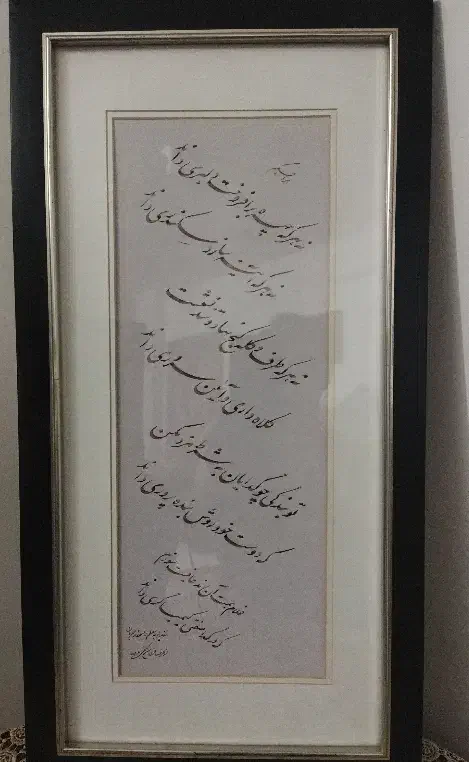 نه هر که چهره برافروخت دلبری داند
نه هر که آینه سازد سکندری داند
نه هر که طرف کله کج نهاد و تند نشست
کلاه داری و آیین سروری داند
تو بندگی چو گدایان به شرط مزد مکن
که دوست خود روش بنده پروری داند
غلام همت آن رند عافیت سوزم
که در گداصفتی کیمیاگری داند